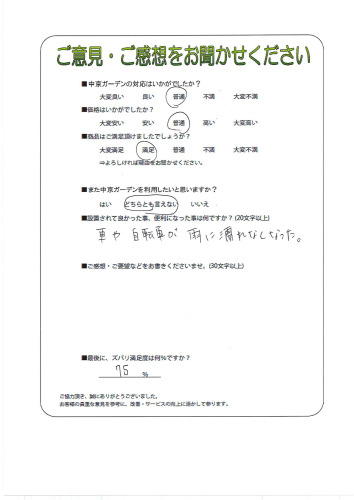 ご意見・ご感想をお聞かせください
■中京ガーデンの対応はいかがでしたか？
大変良い 良い 普通 不満 大変不満
■価格はいかがでしたか？
大変安い 安い 普通 高い 大変高い
■商品はご満足頂けましたでしょうか？
大変満足 満足 普通 不満 大変不満
⇒よろしければ理由をお聞かせください。
■また中京ガーデンを利用したいと思いますか？
はい どちらとも言えない いいえ
■設置されて良かった事、便利になった事は何ですか？(20文字以上)
車や自転車が雨に濡れなくなった。
■ご感想・ご要望などをお書きくださいませ。(30文字以上)
■最後に、ズバリ満足度は何％ですか？
75 ％
ご協力頂き、誠にありがとうございました。
お客様の貴重な意見を参考に、改善・サービスの向上に活かして参ります。